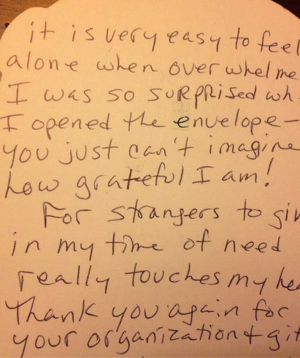 it is very easy to feel
alone when overwhelme
I was so surpprised wh
I opened the envelope—
you just can't imagine
how grateful I am!
For strangers to giv
in my time of need
really touches my hea
Thank you again for
your organization + gif